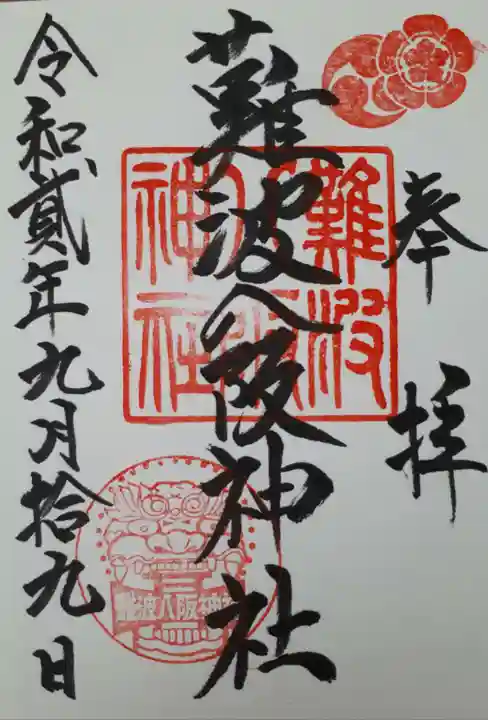 奉拝
難波八阪神社
難波八阪神社
難波八阪神社
令和貳年九月拾九日